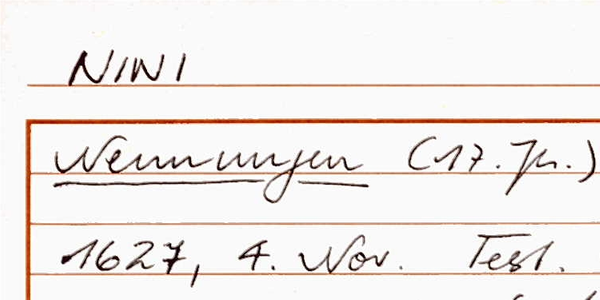 NINI
Nenningen (17. Jh.)
1627, 4. Nov. Test.